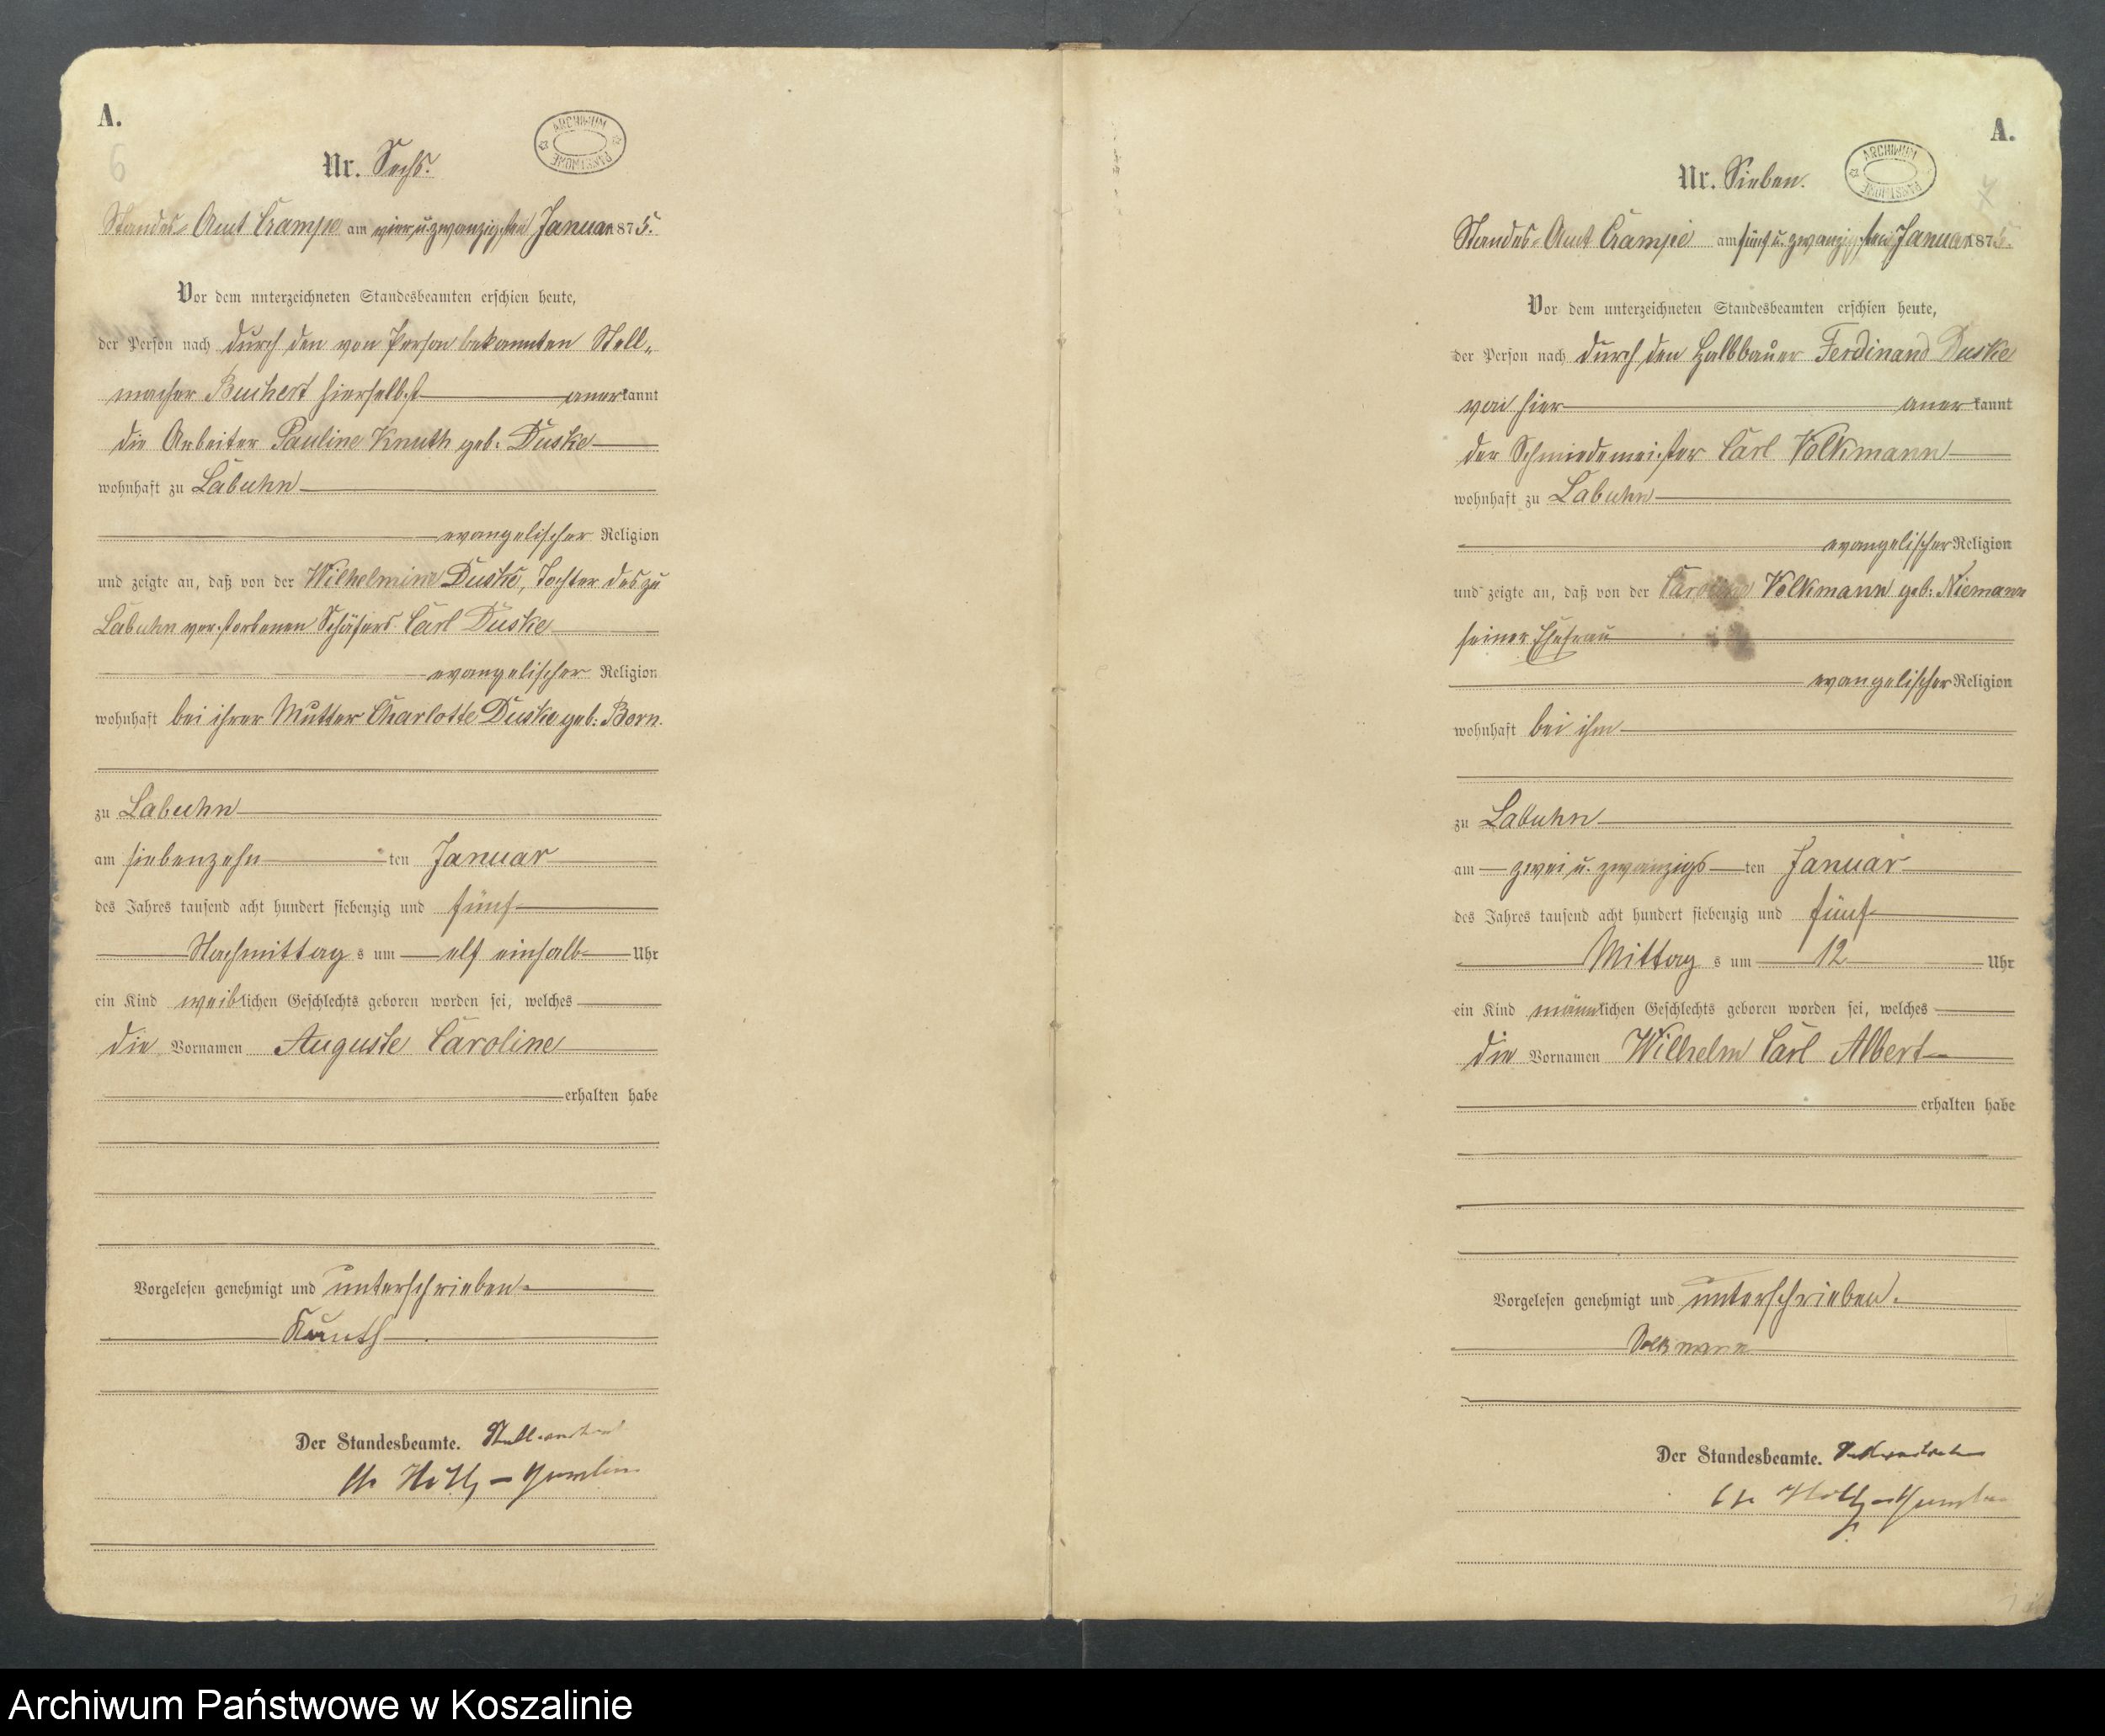 A.
6
ARCHIWUM PAŃSTWOWE
Nr. Sechs.
Standes-Amt Crampe am vier u. zwanzigsten Januar 1875.
Vor dem unterzeichneten Standesbeamten erschien heute,
der Person nach durch den von Person bekannten Stell-
macher Buchert hierselbst anerkannt
die Arbeiter Pauline Knuth geb: Duske
wohnhaft zu Labuhn
evangelischer Religion
und zeigte an, daß von der Wilhelmine Duske, Tochter des zu
Labuhn verstorbenen Schäfers Carl Duske
evangelischer Religion
wohnhaft bei ihrer Mutter Charlotte Duske geb: Born.
zu Labuhn
am siebenzehn ten Januar
des Jahres tausend acht hundert siebenzig und fünf
Nachmittags um elf einhalb Uhr
ein Kind weiblichen Geschlechts geboren worden sei, welches
die Vornamen Auguste Caroline
erhalten habe
Vorgelesen genehmigt und unterschrieben
Knuth
Der Standesbeamte.
A.
7
ARCHIWUM PAŃSTWOWE
Nr. Sieben.
Standes-Amt Crampe am fünf u. zwanzigsten Januar 1875.
Vor dem unterzeichneten Standesbeamten erschien heute,
der Person nach durch den Halbbauer Ferdinand Duske
von hier anerkannt
der Schmiedemeister Carl Volkmann
wohnhaft zu Labuhn
evangelischer Religion
und zeigte an, daß von der Caroline Volkmann geb: Niemann
seiner Ehefrau
evangelischer Religion
wohnhaft bei ihm
zu Labuhn
am zwei u. zwanzigsten Januar
des Jahres tausend acht hundert siebenzig und fünf
Mittags um 12 Uhr
ein Kind männlichen Geschlechts geboren worden sei, welches
die Vornamen Wilhelm Carl Albert
erhalten habe
Vorgelesen genehmigt und unterschrieben.
Volkmann
Der Standesbeamte.
Archiwum Państwowe w Koszalinie